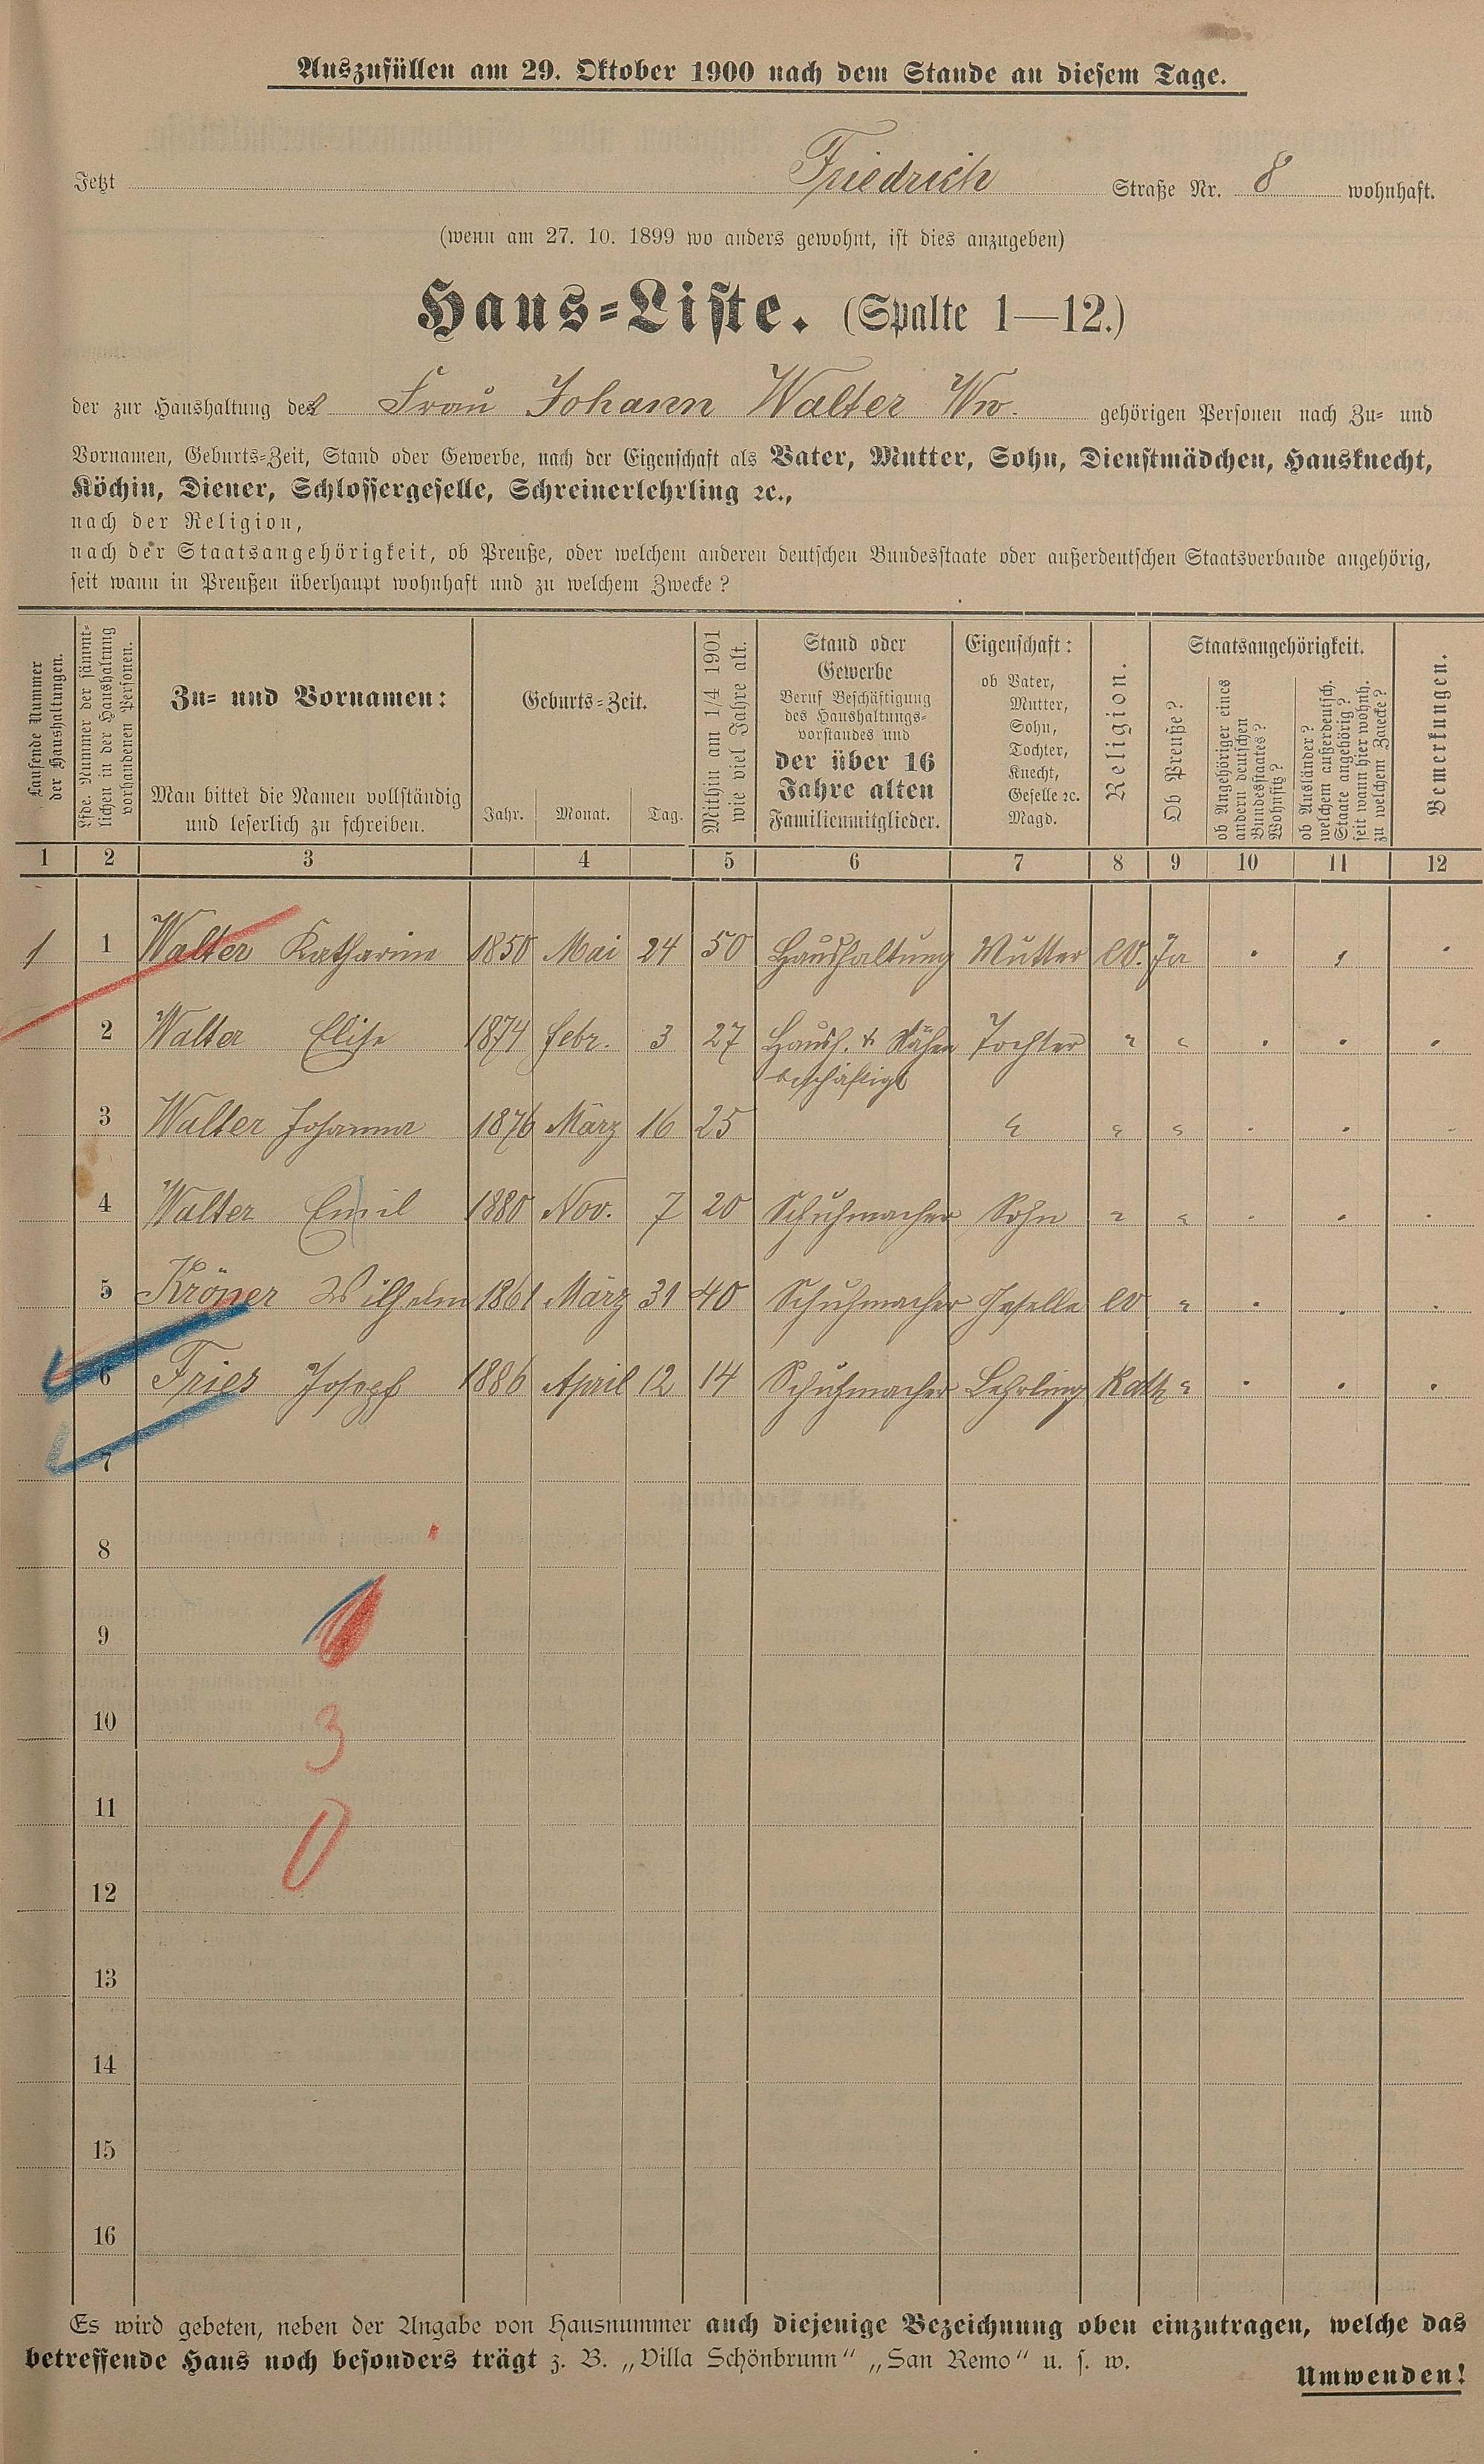 Auszufüllen am 29. Oktober 1900 nach dem Stande an diesem Tage.
Jetzt Friedrich Straße Nr. 8 wohnhaft.
(wenn am 27. 10. 1899 wo anders gewohnt, ist dies anzugeben)
Haus-Liste. (Spalte 1—12.)
der zur Haushaltung der Frau Johann Walter Ww. gehörigen Personen nach Zu- und
Vornamen, Geburts-Zeit, Stand oder Gewerbe, nach der Eigenschaft als Vater, Mutter, Sohn, Dienstmädchen, Hausknecht,
Köchin, Diener, Schlossergeselle, Schreinerlehrling ꝛc.,
nach der Religion,
nach der Staatsangehörigkeit, ob Preuße, oder welchem anderen deutschen Bundesstaate oder außerdeutschen Staatsverbande angehörig,
seit wann in Preußen überhaupt wohnhaft und zu welchem Zwecke?
Laufende Nummer
der Haushaltungen.
Lfde. Nummer der sämmt-
lichen in der Haushaltung
vorhandenen Personen.
Zu- und Vornamen:
Man bittet die Namen vollständig
und leserlich zu schreiben.
Geburts-Zeit.
Jahr. Monat. Tag.
Mithin am 1/4 1901
wie viel Jahre alt.
Stand oder
Gewerbe
Beruf Beschäftigung
des Haushaltungs-
vorstandes und
der über 16
Jahre alten
Familienmitglieder.
Eigenschaft:
ob Vater,
Mutter,
Sohn,
Tochter,
Knecht,
Geselle ꝛc.
Magd.
Religion.
Staatsangehörigkeit.
Ob Preuße?
ob Angehöriger eines
andern deutschen
Bundesstaates?
Wohnsitz?
ob Ausländer?
welchem außerdeutsch.
Staate angehörig?
seit wann hier wohnh.
zu welchem Zwecke?
Bemerkungen.
1 2 3 4 5 6 7 8 9 10 11 12
1 1 Walter Katharine 1850 Mai 24 50 Haushaltung Mutter ev. Ja
2 Walter Elise 1874 Febr. 3 27 Haush. & Nähen Tochter " "
beschäftigt
3 Walter Johanna 1876 März 16 25 " " "
4 Walter Emil 1880 Nov. 7 20 Schuhmacher Sohn " "
5 Kröner Wilhelm 1861 März 31 40 Schuhmacher Geselle ev "
6 Fries Josepf 1886 April 12 14 Schuhmacher Lehrling Kath "
7
8
9
10 3
11
12 0
13
14
15
16
Es wird gebeten, neben der Angabe von Hausnummer auch diejenige Bezeichnung oben einzutragen, welche das
betreffende Haus noch besonders trägt z. B. „Villa Schönbrunn“ „San Remo“ u. s. w.
Umwenden!